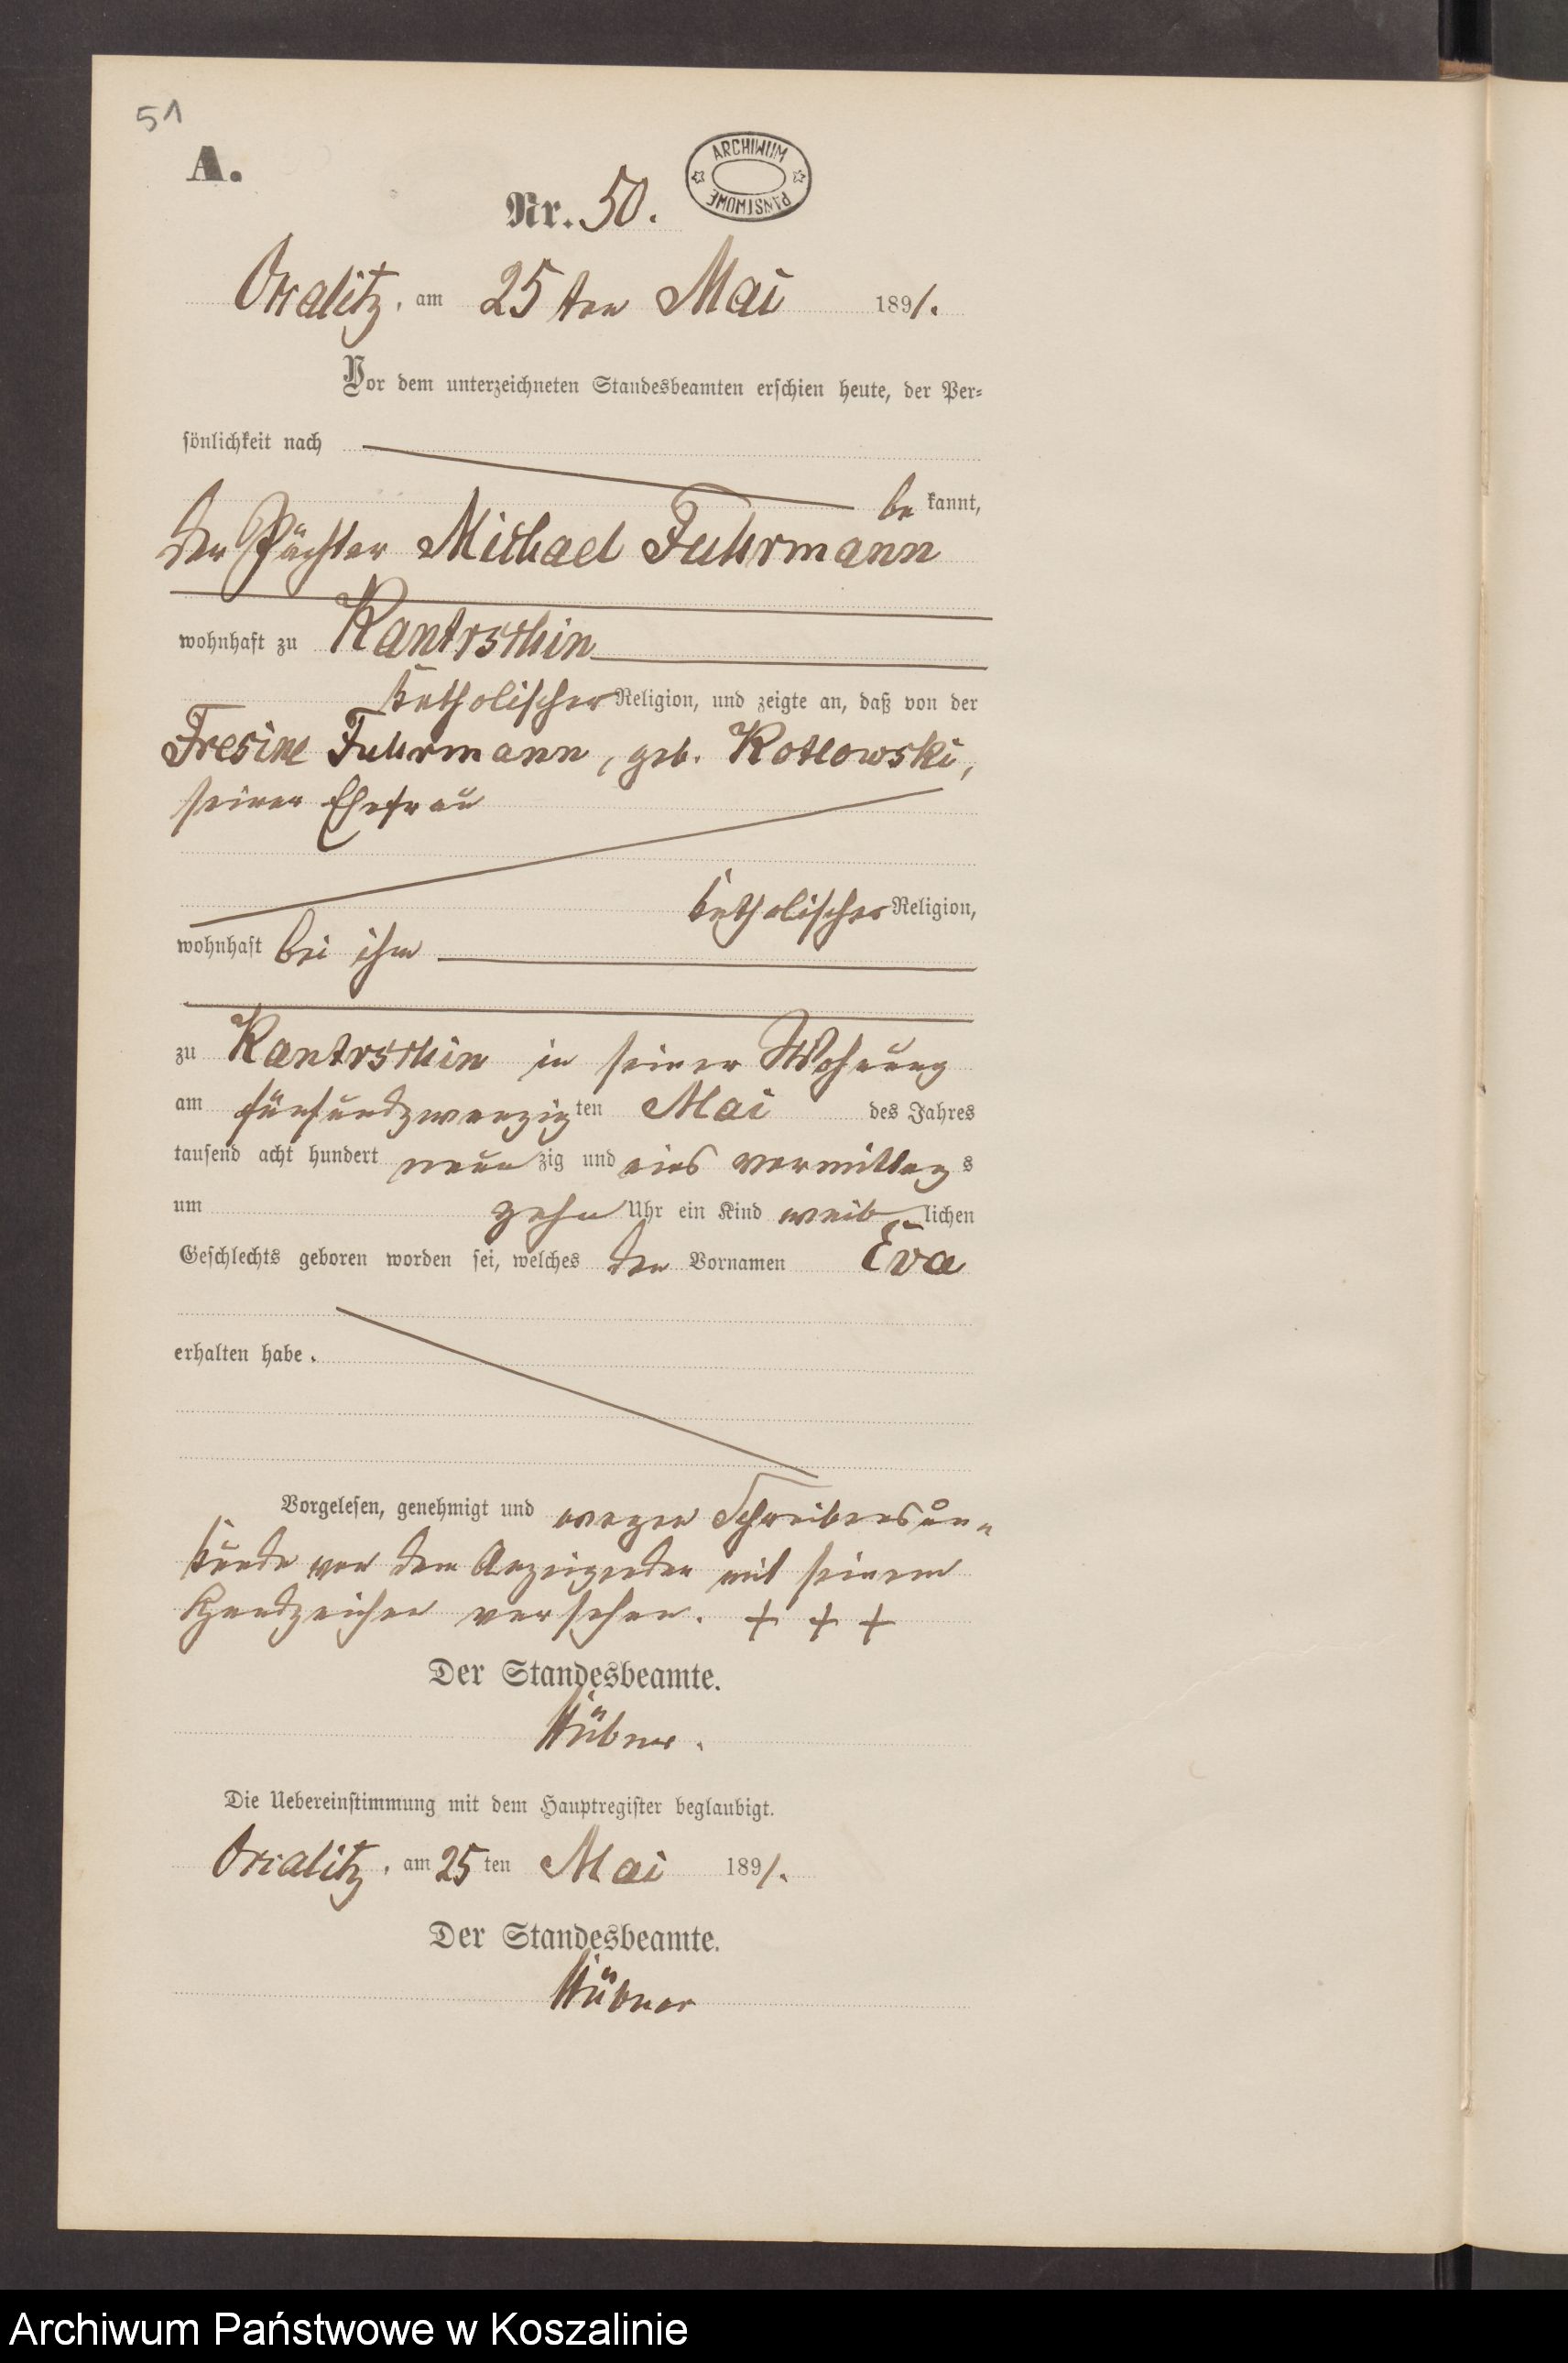 51
A.
ARCHIWUM PAŃSTWOWE
Nr. 50.
Oscalitz, am 25 ten Mai 1891.
Vor dem unterzeichneten Standesbeamten erschien heute, der Per-
sönlichkeit nach
be kannt,
der Pächter Michael Fuhrmann
wohnhaft zu Kantrschin
katholischer Religion, und zeigte an, daß von der
Fresine Fuhrmann, geb. Kotlowski,
seiner Ehefrau
katholischer Religion,
wohnhaft bei ihm
zu Kantrschin in seiner Wohnung
am fünfundzwanzigten Mai des Jahres
tausend acht hundert neunzig und eins vormittags
um zehn Uhr ein Kind weiblichen
Geschlechts geboren worden sei, welches den Vornamen Eva
erhalten habe.
Vorgelesen, genehmigt und wegen Schreibensun-
kunde von dem Anzeigenden mit seinem
Handzeichen versehen. + + +
Der Standesbeamte.
Hübner.
Die Uebereinstimmung mit dem Hauptregister beglaubigt.
Oscalitz, am 25 ten Mai 1891.
Der Standesbeamte.
Hübner
Archiwum Państwowe w Koszalinie